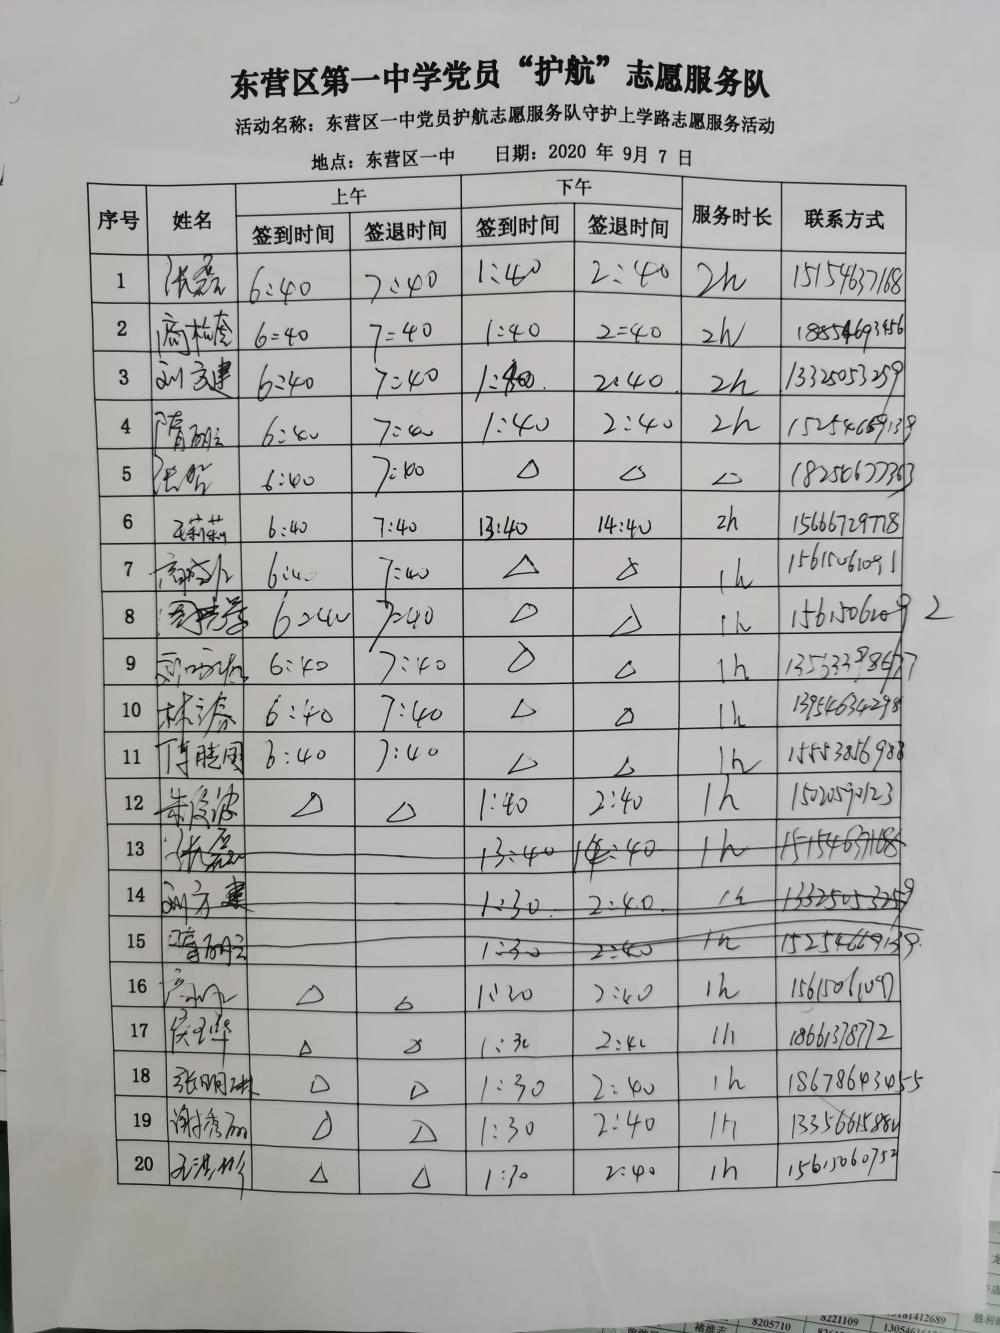 东营区第一中学党员“护航”志愿服务队
活动名称：东营区一中党员护航志愿服务队守护上学路志愿服务活动
地点：东营区一中 日期：2020 年 9月 7 日
序号 姓名 上午 下午 服务时长 联系方式
签到时间 签退时间 签到时间 签退时间
1 张磊 6:40 7:40 1:40 2:40 2h 15154637168
2 6:40 7:40 1:40 2:40 2h 18854693456
3 刘方建 6:40 7:40 1:40 2:40 2h 13325053259
4 隋丽 6:40 7:40 1:40 2:40 2h 15254669139
5 6:40 7:40 △ △ △ 18250677363
6 王莉莉 6:40 7:40 13:40 14:40 2h 15666729778
7 6:40 7:40 △ △ 1h 15615061091
8 6:40 7:40 △ △ 1h 15615062092
9 6:40 7:40 △ △ 1h
10 6:40 7:40 △ △ 1h 13954634298
11 傅晓国 6:40 7:40 △ △ 1h 15553856988
12 朱俊波 △ △ 1:40 2:40 1h 1502590123
13 张磊 13:40 14:40 1h 15154637168
14 刘方建 1:30 2:40 1h 13325053259
15 隋丽 1:30 2:40 1h 15254669139
16 △ △ 1:30 2:40 1h
17 侯玉华 △ △ 1:30 2:40 1h 18661378772
18 张明琳 △ △ 1:30 2:40 1h 18678643455
19 谢秀丽 △ △ 1:30 2:40 1h 13356615884
20 △ △ 1:30 2:40 1h 15615060752
8205710 8221109 13181412689
褚维志